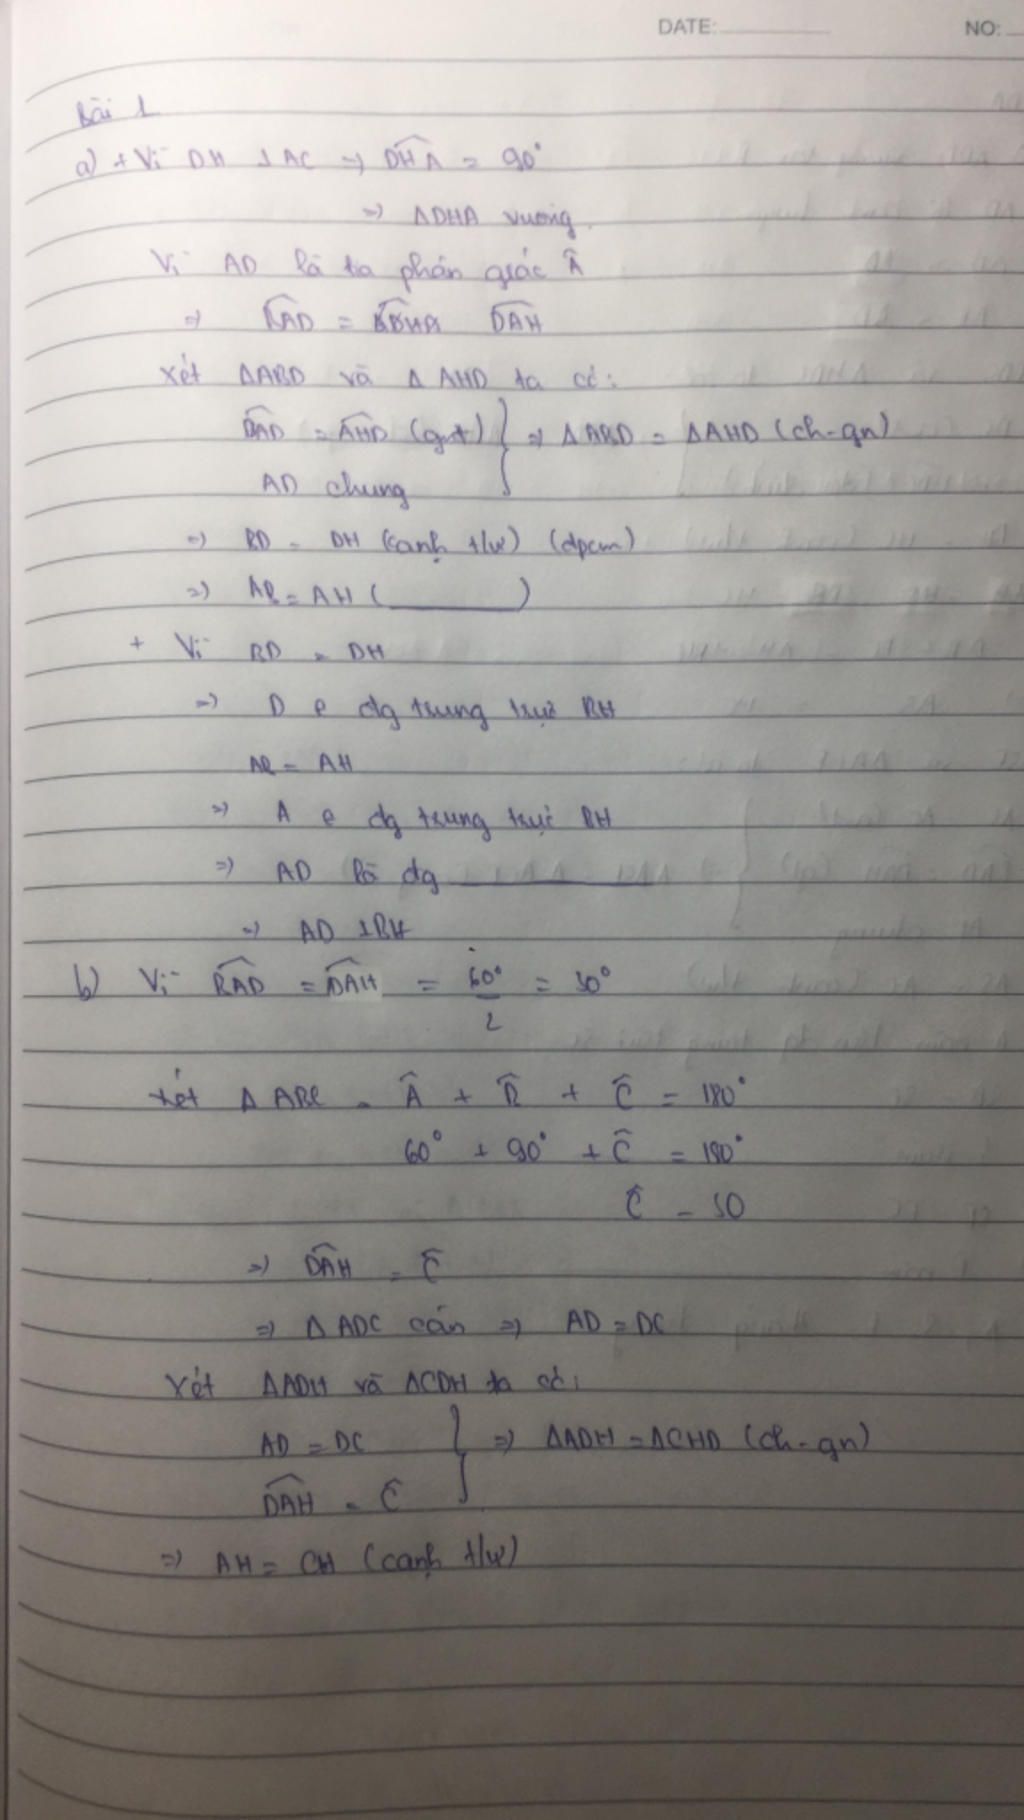 DATE: NO:
Bài 1
a) + Vì DH ⊥ AC => DHA = 90°
=> ΔDHA vuông
Vì AD là tia phân giác Â
=> BAD = DAH
xét ΔABD và Δ AHD ta có:
BAD = AHD (gmt) } => ΔABD = ΔAHD (ch-gn)
AD chung
=> BD = DH (cạnh t/ư) (đpcm)
=> AB = AH ( )
+ Vì BD = DH
=> D e đg trung trực BH
AB = AH
=> A e đg trung trực BH
=> AD là đg
=> AD ⊥ BH
b) Vì BAD = DAH = 60°/2 = 30°
xét Δ ABC = Â + B̂ + Ĉ = 180°
60° + 90° + Ĉ = 180°
Ĉ = 30
=> DAH = Ĉ
=> Δ ADC cân => AD = DC
xét ΔADH và ΔCDH ta có:
AD = DC } => ΔADH = ΔCHD (ch-gn)
DAH = Ĉ
=> AH = CH (cạnh t/ư)